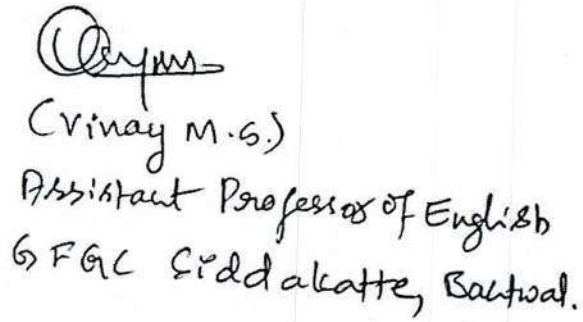 (Vinay M.S.)
Assistant Professor of English
GFGC Siddakatte, Bantwal.